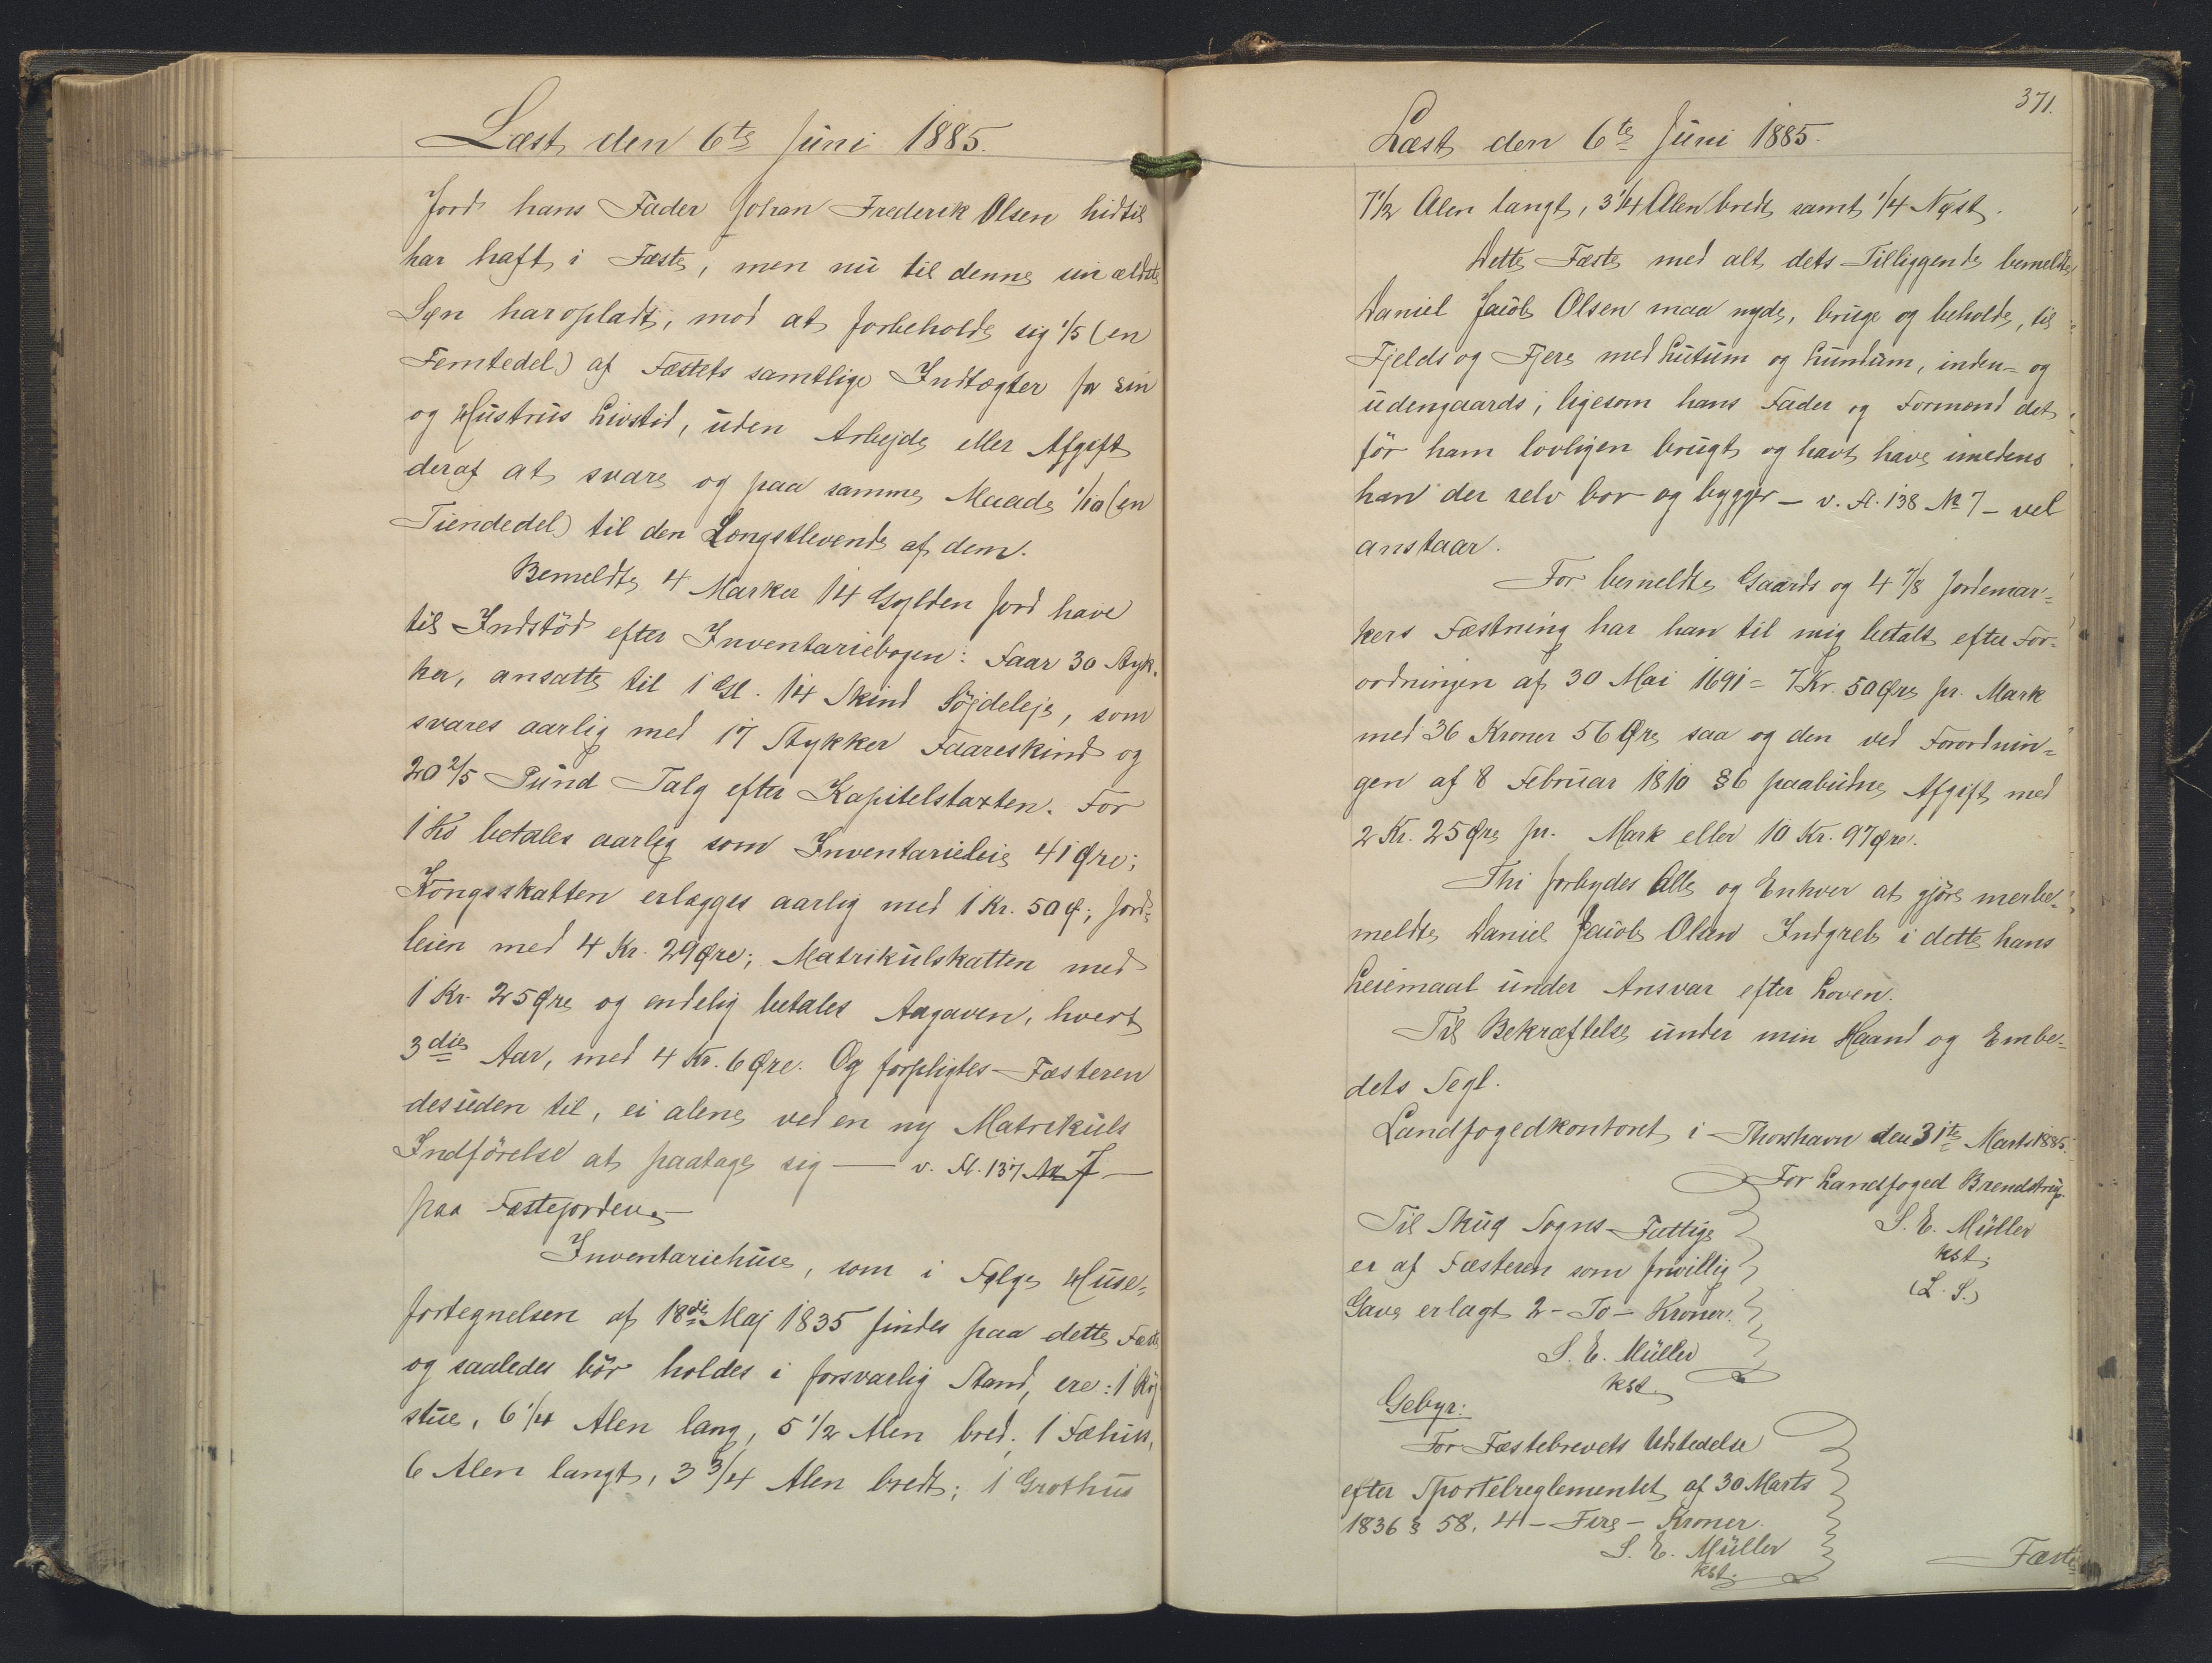 Læst den 6te Juni 1885.
Jord hans Fader Johan Frederik Olsen hidtil
har haft i Fæste, men nu til denne sin ældste
Søn har opladt, mod at forbeholde sig 1/5 (en
Femtedel) af Fæstets samtlige Indtægter for sin
og Hustrus Livstid, uden Arbejde eller Afgift
deraf at svare og paa samme Maade 1/10 (en
Tiendedel) til den Længstlevende af dem.
Bemeldte 4 Marker 14 Gylden Jord have
til Indstöd efter Inventariebogen: Faar 30 Styk-
ker, ansatte til 1 Gl. 14 Skind Söjdeleje, som
svares aarlig med 17 Stykker Faareskind og
20 2/5 Pund Talg efter Kapitelstaxten. For
1 Ko betales aarlig som Inventarieleie 41 Øre;
Kongsskatten erlægges aarlig med 1 Kr. 50 Ø; Jord-
leien med 4 Kr. 29 Øre; Matrikulskatten med
1 Kr. 25 Øre og endelig betales Aagaven, hvert
3die Aar, med 4 Kr. 6 Øre. Og forpligtes Fæsteren
desuden til, ei alene ved en ny Matrikuls
Indförelse at paatage sig — v. Fl. 137 № 7 —
paa Fæstejorden. —
Inventariehuse, som i Følge Huse-
fortegnelsen af 18de Maj 1835 findes paa dette Fæste
og saaledes bör holdes i forsvarlig Stand, ere: 1 Rög-
stue, 6 1/4 Alen lang, 5 1/2 Alen bred; 1 Fæhus,
6 Alen langt, 3 3/4 Alen bredt; 1 Grothus
371.
Læst den 6te Juni 1885.
7 1/2 Alen langt, 3 1/4 Alen bredt samt 1/4 Nøst.
Dette Fæste med alt dets Tilliggende bemeldte
Daniel Jacob Olsen maa nyde, bruge og beholde, til
Fjelds og Fjere med Lutum og Lundum, inden- og
udengaards, ligesom hans Fader og Formænd det
för ham lovligen brugt og havt have imedens
han der selv bor og bygger — v. Fl. 138 № 7 — vel
anstaar.
For bemeldte Gaards og 4 7/8 Jordemar-
kers Fæstning har han til mig betalt efter For-
ordningen af 30 Mai 1691 = 7 Kr. 50 Øre pr. Mark
med 36 Kroner 56 Øre saa og den ved Forordnin-
gen af 8 Februar 1810 § 6 paabudne Afgift med
2 Kr. 25 Øre pr. Mark eller 10 Kr. 97 Øre.
Thi forbydes Alle og Enhver at gjöre merbe-
meldte Daniel Jacob Olsen Indgreb i dette hans
Leiemaal under Ansvar efter Loven.
Til Bekræftelse under min Haand og Embe-
dets Segl.
Landfogedkontoret i Thorshavn den 31te Marts 1885.
For Landfoged Brendstrup
S. E. Müller
kst.
(L. S.)
Til Skuø Sogns Fattige
er af Fæsteren som frivillig
Gave erlagt 2 - To - Kroner.
S. E. Müller
kst.
Gebyr:
For Fæstebrevets Udstedelse
efter Sportelreglementet af 30 Marts
1836 § 58. 4 - Fire - Kroner.
S. E. Müller
kst.
Fæste